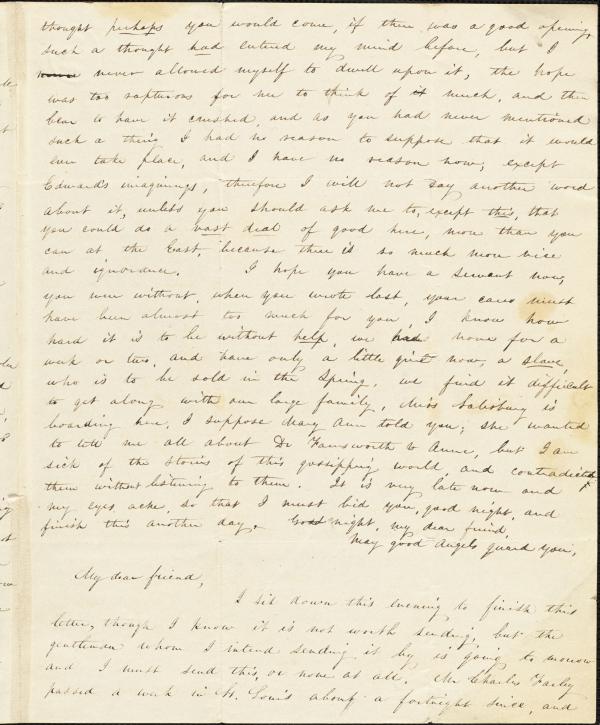 thought perhaps you would come, if there was a good opening,
such a thought had entered my mind before, but I
never allowed myself to dwell upon it, the hope
was too rapturous for me to think of it much, and then
bear to have it crushed, and as you had never mentioned
such a thing I had no reason to suppose that it would
ever take place, and I have no reason now, except
Edward's imaginings, therefore I will not say another word
about it, unless you should ask me to, except this, that
you could do a vast deal of good here, more than you
can at the East, because there is so much more vice
and ignorance. I hope you have a servant now,
you were without, when you wrote last, your cares must
have been almost too much for you, I know how
hard it is to be without help, we had none for a
week or two, and have only a little girl now, a slave,
who is to be sold in the Spring, we find it difficult
to get along with our large family, Miss Salisbury is
boarding here, I suppose Mary Ann told you; she wanted
to tell me all about Dr Farnsworth & Anne, but I am
sick of the stories of this gossipping world, and contradicted
them without listening to them. It is very late now and
my eyes ache, so that I must bid you, good night, and
finish this another day. Good night, my dear friend,
May good angels guard you,
My dear friend,
I sit down this evening to finish this
letter, though I know it is not worth sending, but the
gentleman whom I intend sending it by is going to morrow
and I must send this, or none at all. Mr Charles Farley
passed a week in St. Louis about a fortnight since, and